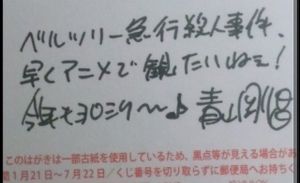 ベルツリー急行殺人事件、
早くアニメで観たいねぇ!
今年もヨロシク〜♪ 青山剛昌
このはがきは一部古紙を使用しているため、黒点等が見える場合があ
1月21日〜7月22日/くじ番号を切り取らずに郵便局へお持ちく